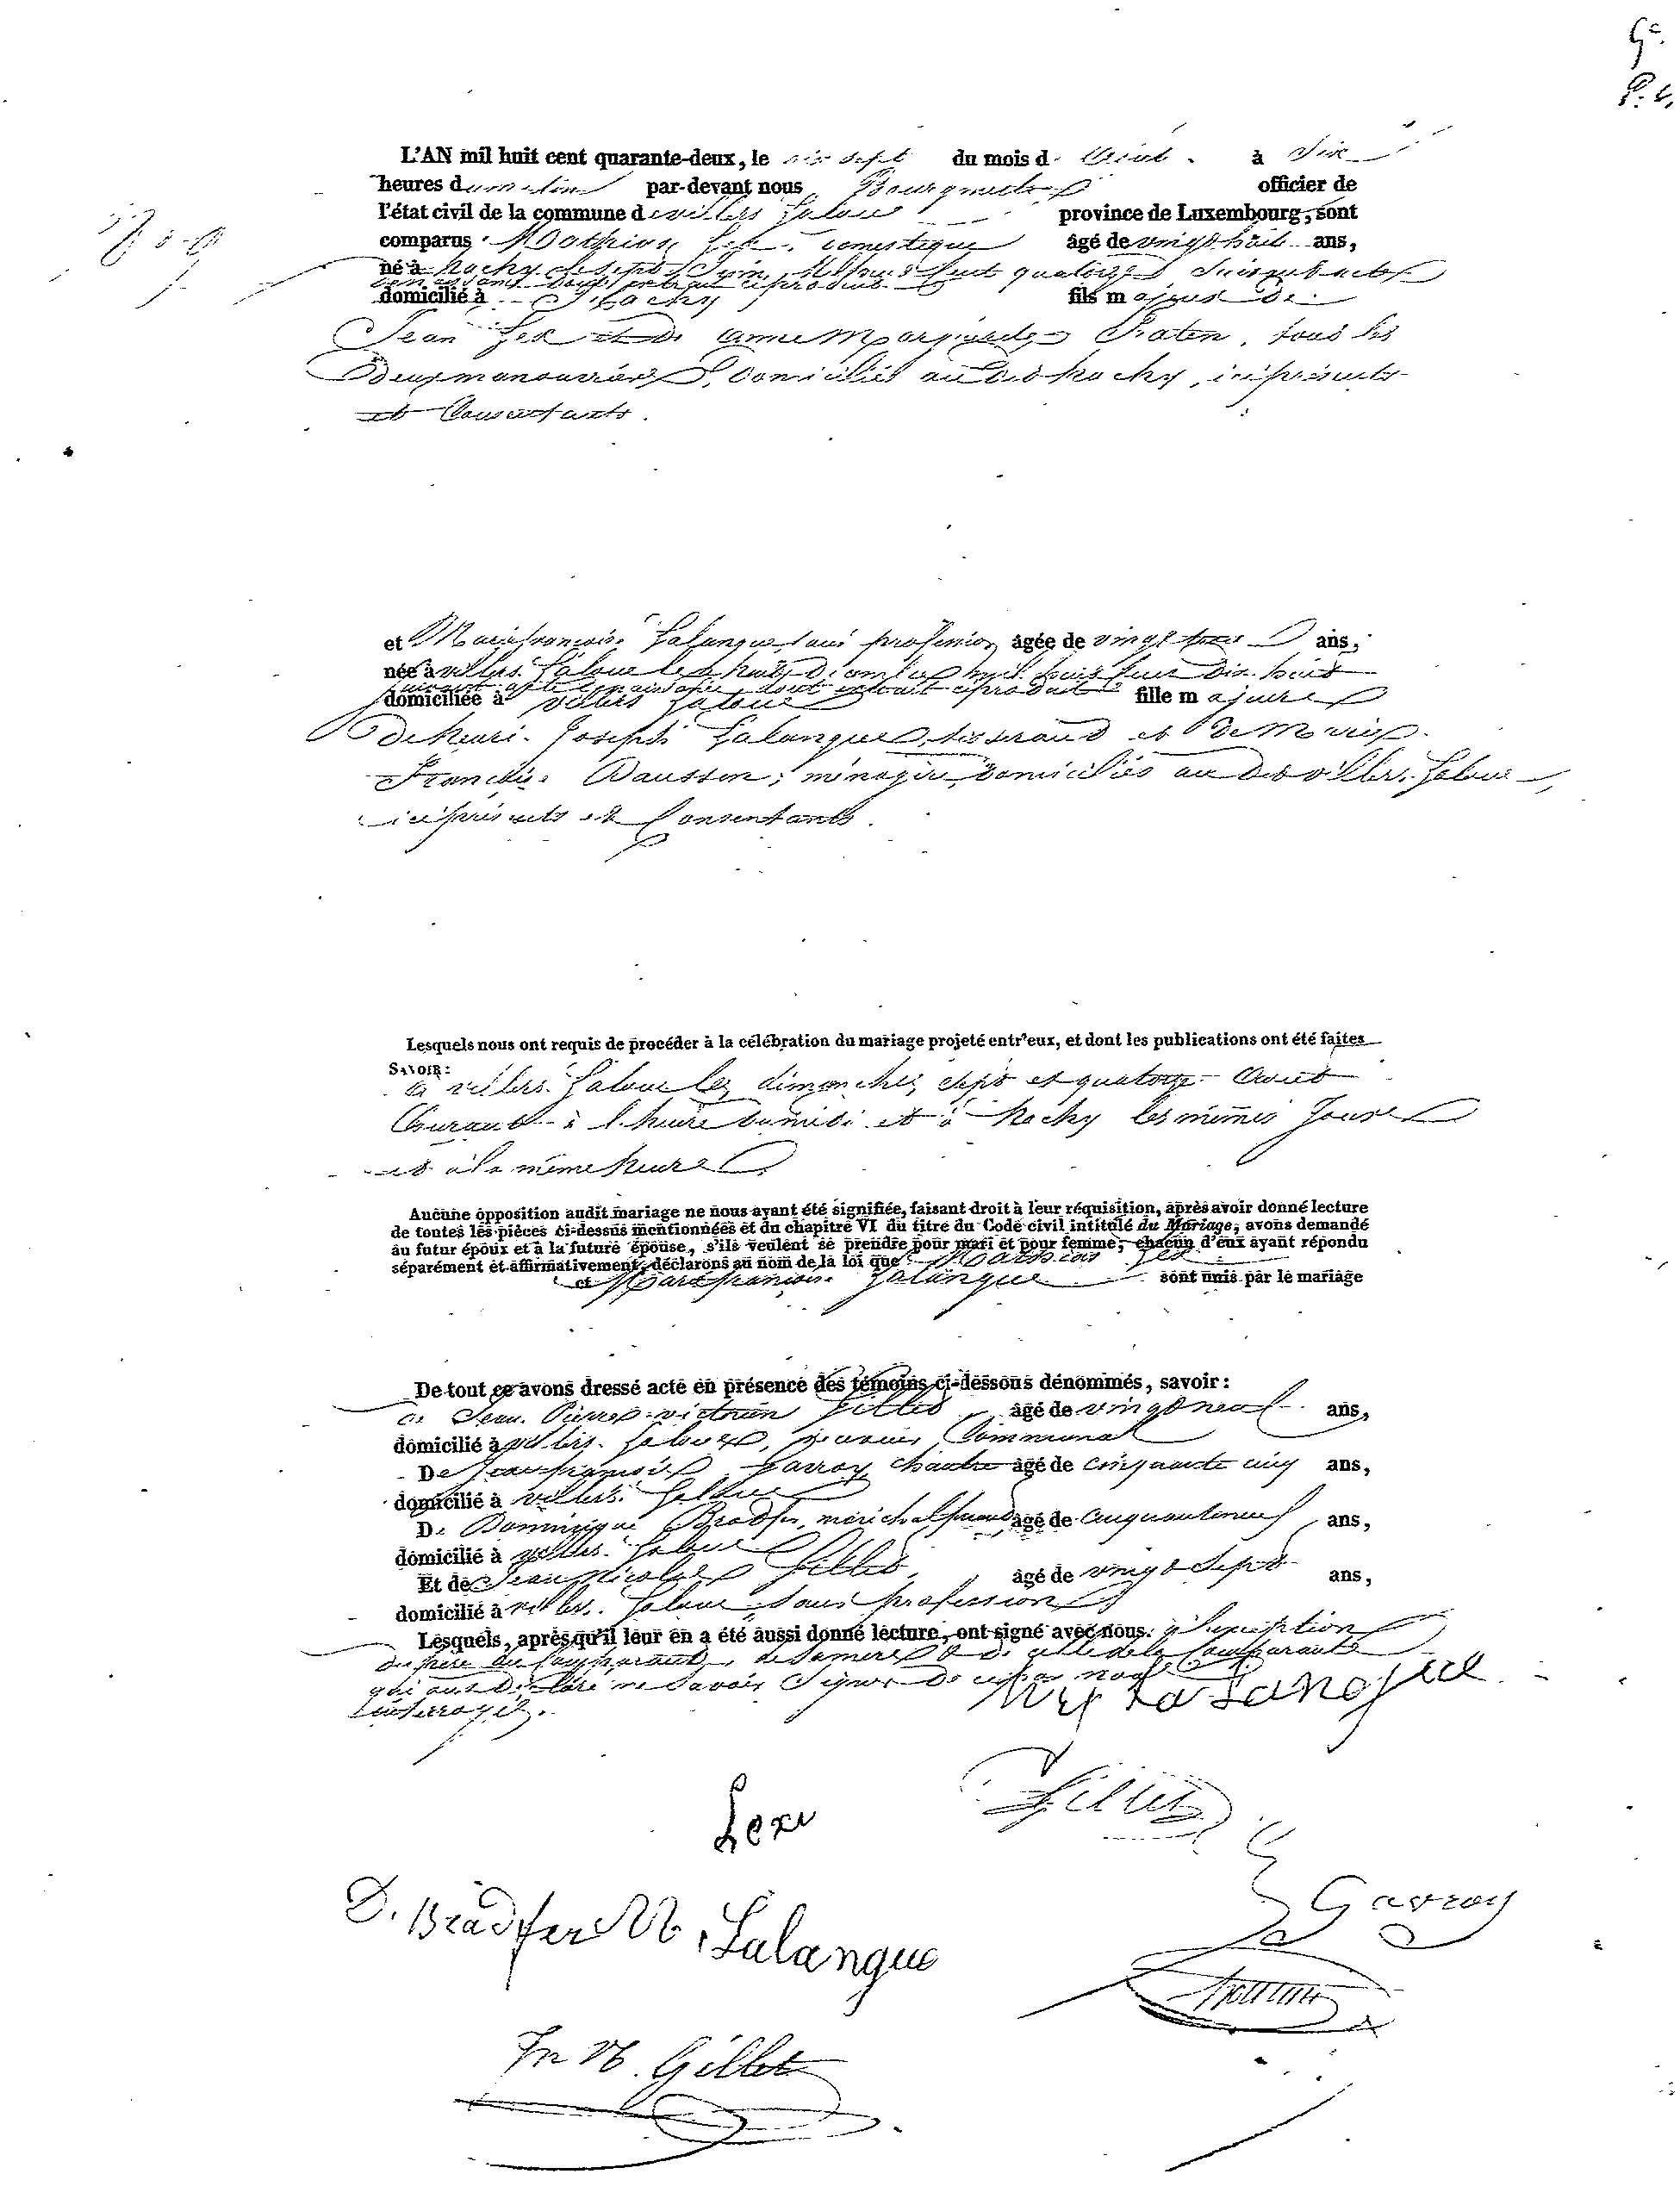 L'AN mil huit cent quarante-deux, le dix sept du mois d' Aout à Six
heures du matin par-devant nous Bourgmestre officier de
l'état civil de la commune de villers Laloue province de Luxembourg, sont
comparus Mathias Lex domestique âgé de vingt huit ans,
né à hachy le sept Juin mil huit cent quatorze suivant acte
dont extrait ci produit
domicilié à hachy fils majeur de
Jean Lex et de anne Marguerite tous les
deux manouvriers, domiciliés au dit hachy, ici présents
et Consentants.
et Marie françoise Lalangue sans profession âgée de vingt trois ans,
née à villers Laloue le huit mil huit cent dix huit
suivant acte de naissance, dont extrait ci produit
domiciliée à villers Laloue fille majeure
de henri Joseph Lalangue, tisserand et de Marie
Françoise Dausson, ménagère, domiciliés au dit villers Laloue
ici présents et Consentants.
Lesquels nous ont requis de procéder à la célébration du mariage projeté entr'eux, et dont les publications ont été faites
SAVOIR:
à villers Laloue les dimanches sept et quatorze Aout
Courant à l'heure de midi et à hachy les mêmes Jours
et à la même heure
Aucune opposition audit mariage ne nous ayant été signifiée, faisant droit à leur réquisition, après avoir donné lecture
de toutes les pièces ci-dessus mentionnées et du chapitre VI du titre du Code civil intitulé du Mariage, avons demandé
au futur époux et à la future épouse, s'ils veulent se prendre pour mari et pour femme; chacun d'eux ayant répondu
séparément et affirmativement, déclarons au nom de la loi que Mathias Lex
et Marie françoise Lalangue sont unis par le mariage
De tout ce avons dressé acte en présence des témoins ci-dessous dénommés, savoir:
de Jean Pierre victorin Gillet âgé de vingt neuf ans,
domicilié à villers Laloue, Communal
De Jean françois Gavroy, chantre âgé de cinquante cinq ans,
domicilié à villers Laloue
De Dominique Bradfer, maréchal ferrand âgé de cinquante neuf ans,
domicilié à villers Laloue
Et de Jean Nicolas Gillet âgé de vingt sept ans,
domicilié à villers Laloue, sans profession
Lesquels, après qu'il leur en a été aussi donné lecture, ont signé avec nous. à l'exception
du père du Comparant, de sa mère et de celle de la Comparante
qui ont déclaré ne savoir Signer de ce par nous
interrogés.
Lalangue
Gillet
Lex
Gavroy
D. Bradfer
M. f. Lalangue
Jn N. Gillet